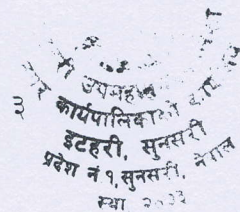 उपमहान
कार्यपालिकाको
इटहरी, सुनसरी
प्रदेश नं १, सुनसरी, नेपाल
स्था